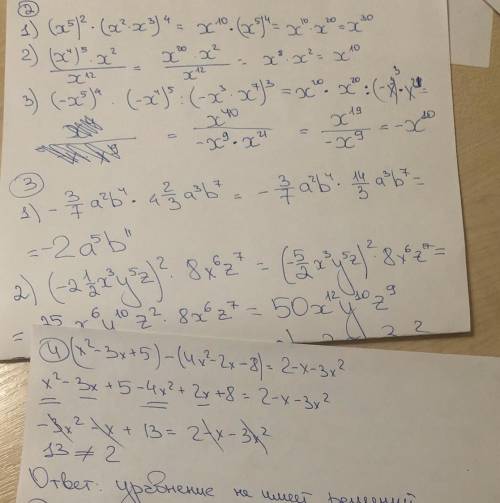 ②
1) (x⁵)² · (x² · x³)⁴ = x¹⁰ · (x⁵)⁴ = x¹⁰ · x²⁰ = x³⁰
2) (x⁴)⁵ · x² / x¹² = x²⁰ · x² / x¹² = x⁸ · x² = x¹⁰
3) (-x⁵)⁴ · (-x⁴)⁵ : (-x³ · x⁷)³ = x²⁰ · x²⁰ :
= x⁴⁰ / -x⁹ · x²¹ = x¹⁹ / -x⁹ = -x¹⁰
③
1) - 3/7 a²b⁴ · 4 2/3 a³b⁷ = - 3/7 a²b⁴ · 14/3 a³b⁷ =
= -2a⁵b¹¹
2) (-2 1/2 x³y⁵z)² · 8x⁶z⁷ = (-5/2 x³y⁵z)² · 8x⁶z⁷ =
= x⁶y¹⁰z² · 8x⁶z⁷ = 50x¹²y¹⁰z⁹
④ (x²-3x+5) - (4x²-2x-8) = 2-x-3x²
x² - 3x + 5 - 4x² + 2x + 8 = 2-x-3x²
-3x² - x + 13 = 2-x-3x²
13 ≠ 2
Ответ: уравнение не имеет решений